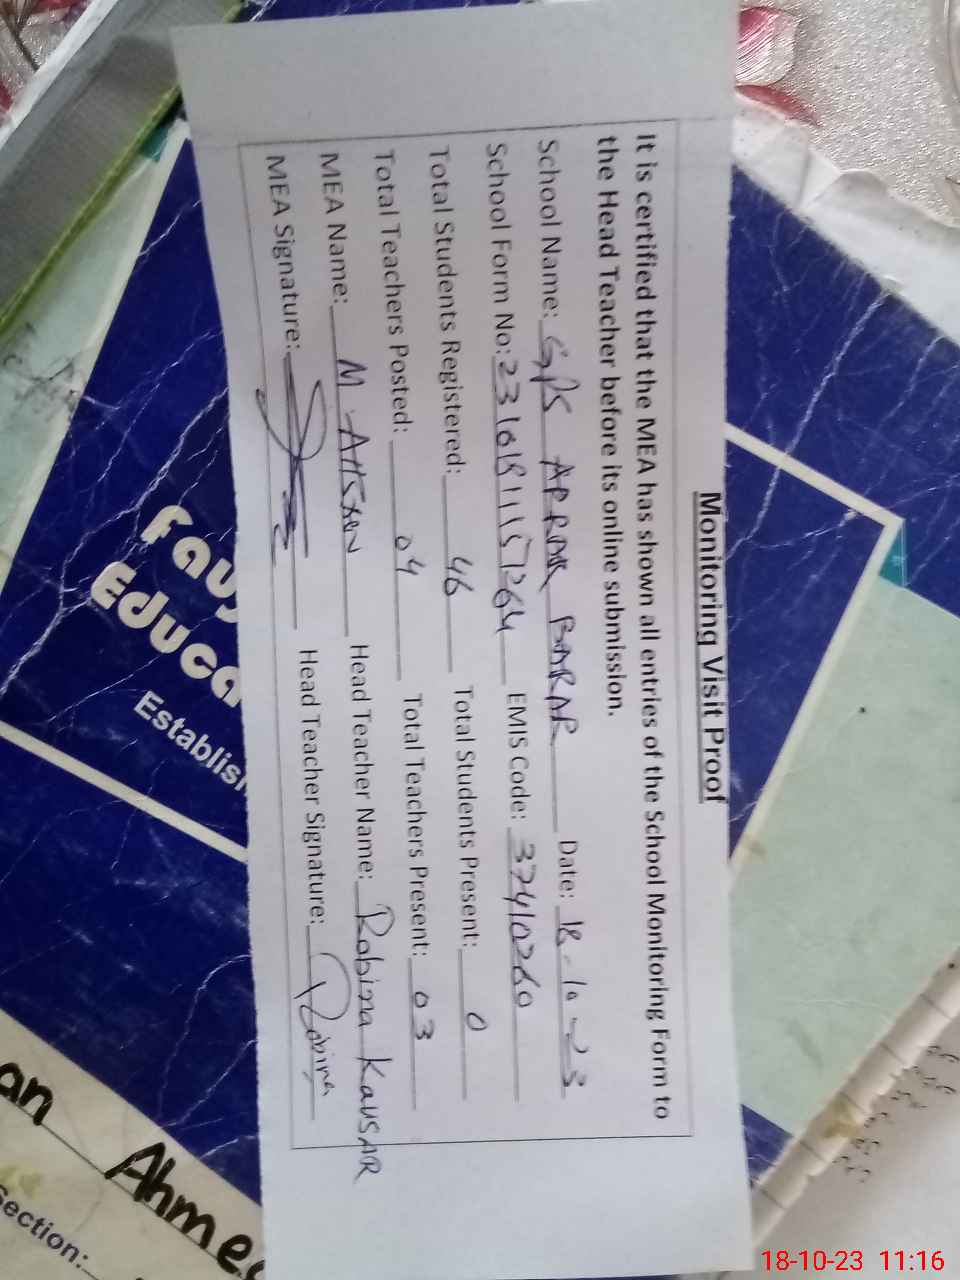 Monitoring Visit Proof
It is certified that the MEA has shown all entries of the School Monitoring Form to
the Head Teacher before its online submission.
School Name: GPS ARRAR BARAR Date: 18-10-23
School Form No: EMIS Code: 37410260
Total Students Registered: 46 Total Students Present: 0
Total Teachers Posted: 04 Total Teachers Present: 03
MEA Name: M. AHSAN Head Teacher Name: Robina KAUSAR
MEA Signature: Head Teacher Signature: Robina
Educa
an Ahmed
Section:
18-10-23 11:16